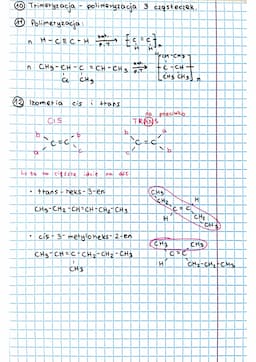 10 Trimeryzacja - polimeryzacja 3 cząsteczek.
11 Polimeryzacja:
n H-C≡C-H kat. p.T [C=C]n
H H
n CH₃-CH-C=CH-CH₃ kat. p.T [CH-CH₃
C-CH
CH₃ CH₃]n
CH₃
12 Izometria cis i trans
na przeciwko
CIS TRANS
b b a b
C=C C=C
a c b c
to co cięższe idzie na dół
• trans-heks-3-en
CH₃-CH₂-CH=CH-CH₂-CH₃
CH₃ CH₂ H
C=C
H CH₂ CH₃
• cis-3-metyloheks-2-en
CH₃-CH=C-CH₂-CH₂-CH₃
CH₃
CH₃ CH₃
C=C
H CH₂-CH₂-CH₃